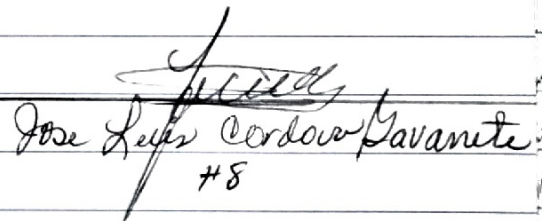 Jose Luis Cordova Gavarrete
#8